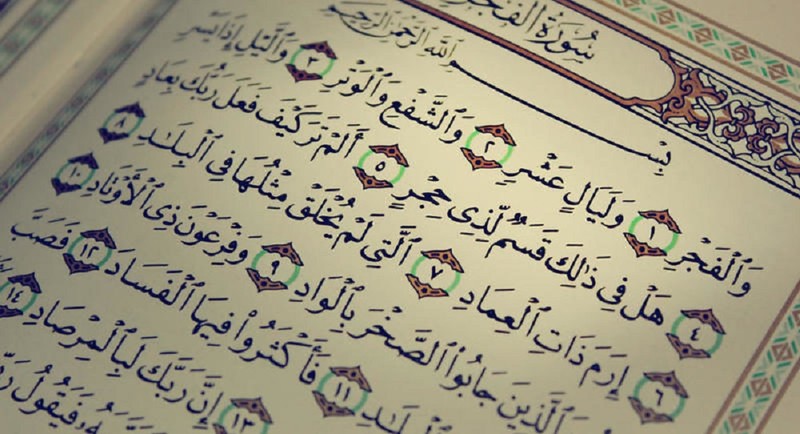 سُورَةُ الفَجْرِ
بِسْمِ ٱللَّهِ ٱلرَّحْمَٰنِ ٱلرَّحِيمِ
وَٱلْفَجْرِ ١ وَلَيَالٍ عَشْرٍ ٢ وَٱلشَّفْعِ وَٱلْوَتْرِ ٣ وَٱلَّيْلِ إِذَا يَسْرِ
٤ هَلْ فِى ذَٰلِكَ قَسَمٌ لِّذِى حِجْرٍ ٥ أَلَمْ تَرَ كَيْفَ فَعَلَ رَبُّكَ بِعَادٍ
٦ إِرَمَ ذَاتِ ٱلْعِمَادِ ٧ ٱلَّتِى لَمْ يُخْلَقْ مِثْلُهَا فِى ٱلْبِلَٰدِ ٨
ٱلَّذِينَ جَابُوا۟ ٱلصَّخْرَ بِٱلْوَادِ ٩ وَفِرْعَوْنَ ذِى ٱلْأَوْتَادِ ١٠
١١ فَأَكْثَرُوا۟ فِيهَا ٱلْفَسَادَ ١٢ فَصَبَّ
١٣ إِنَّ رَبَّكَ لَبِٱلْمِرْصَادِ ١٤
فَيَقُولُ